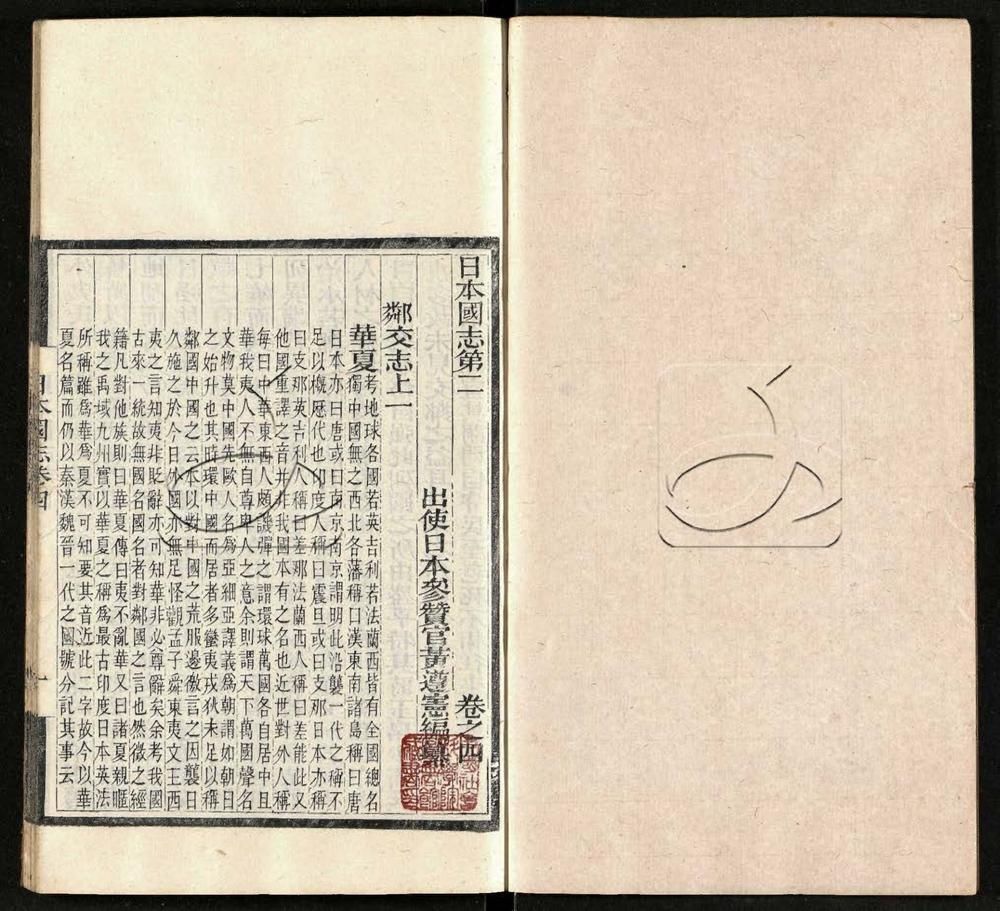 日本國志第二
卷之四
出使日本參贊官黃遵憲編纂
鄰交志上一
華夏
考地球各國若英吉利若法蘭西皆有全國總名
獨中國無之西北各藩稱曰漢東南諸島稱曰唐
日本亦曰唐或曰南京南京謂明此沿襲一代之稱不
足以概歷代也印度人稱曰震旦或曰支那日本亦稱
曰支那英吉利人稱曰差那法蘭西人稱曰差能此又
他國重譯之音并非我國本有之名也近世對外人稱
每曰中華東西人頗譏彈之謂環球萬國各自居中且
華我夷人不無自尊卑人之意余則謂天下萬國聲名
文物莫中國先歐人名爲亞細亞譯義爲朝謂如朝日
之始升也其時環中國而居者多蠻夷戎狄未足以稱
鄰國中國之云本以對中國之荒服邊徼言之因襲日
久施之於今日外國亦無足怪觀孟子舜東夷文王西
夷之言知夷非貶辭亦可知華非必尊辭矣余考我國
古來一統故無國名國名者對鄰國之言也然徵之經
籍凡對他族則曰華夏傳曰夷不亂華又曰諸夏親暱
我之禹域九州實以華夏之稱爲最古印度日本英法
所稱雖爲華爲夏不可知要其音近此二字故今以華
夏名篇而仍以秦漢魏晉一代之國號分記其事云
日本國志卷四
一